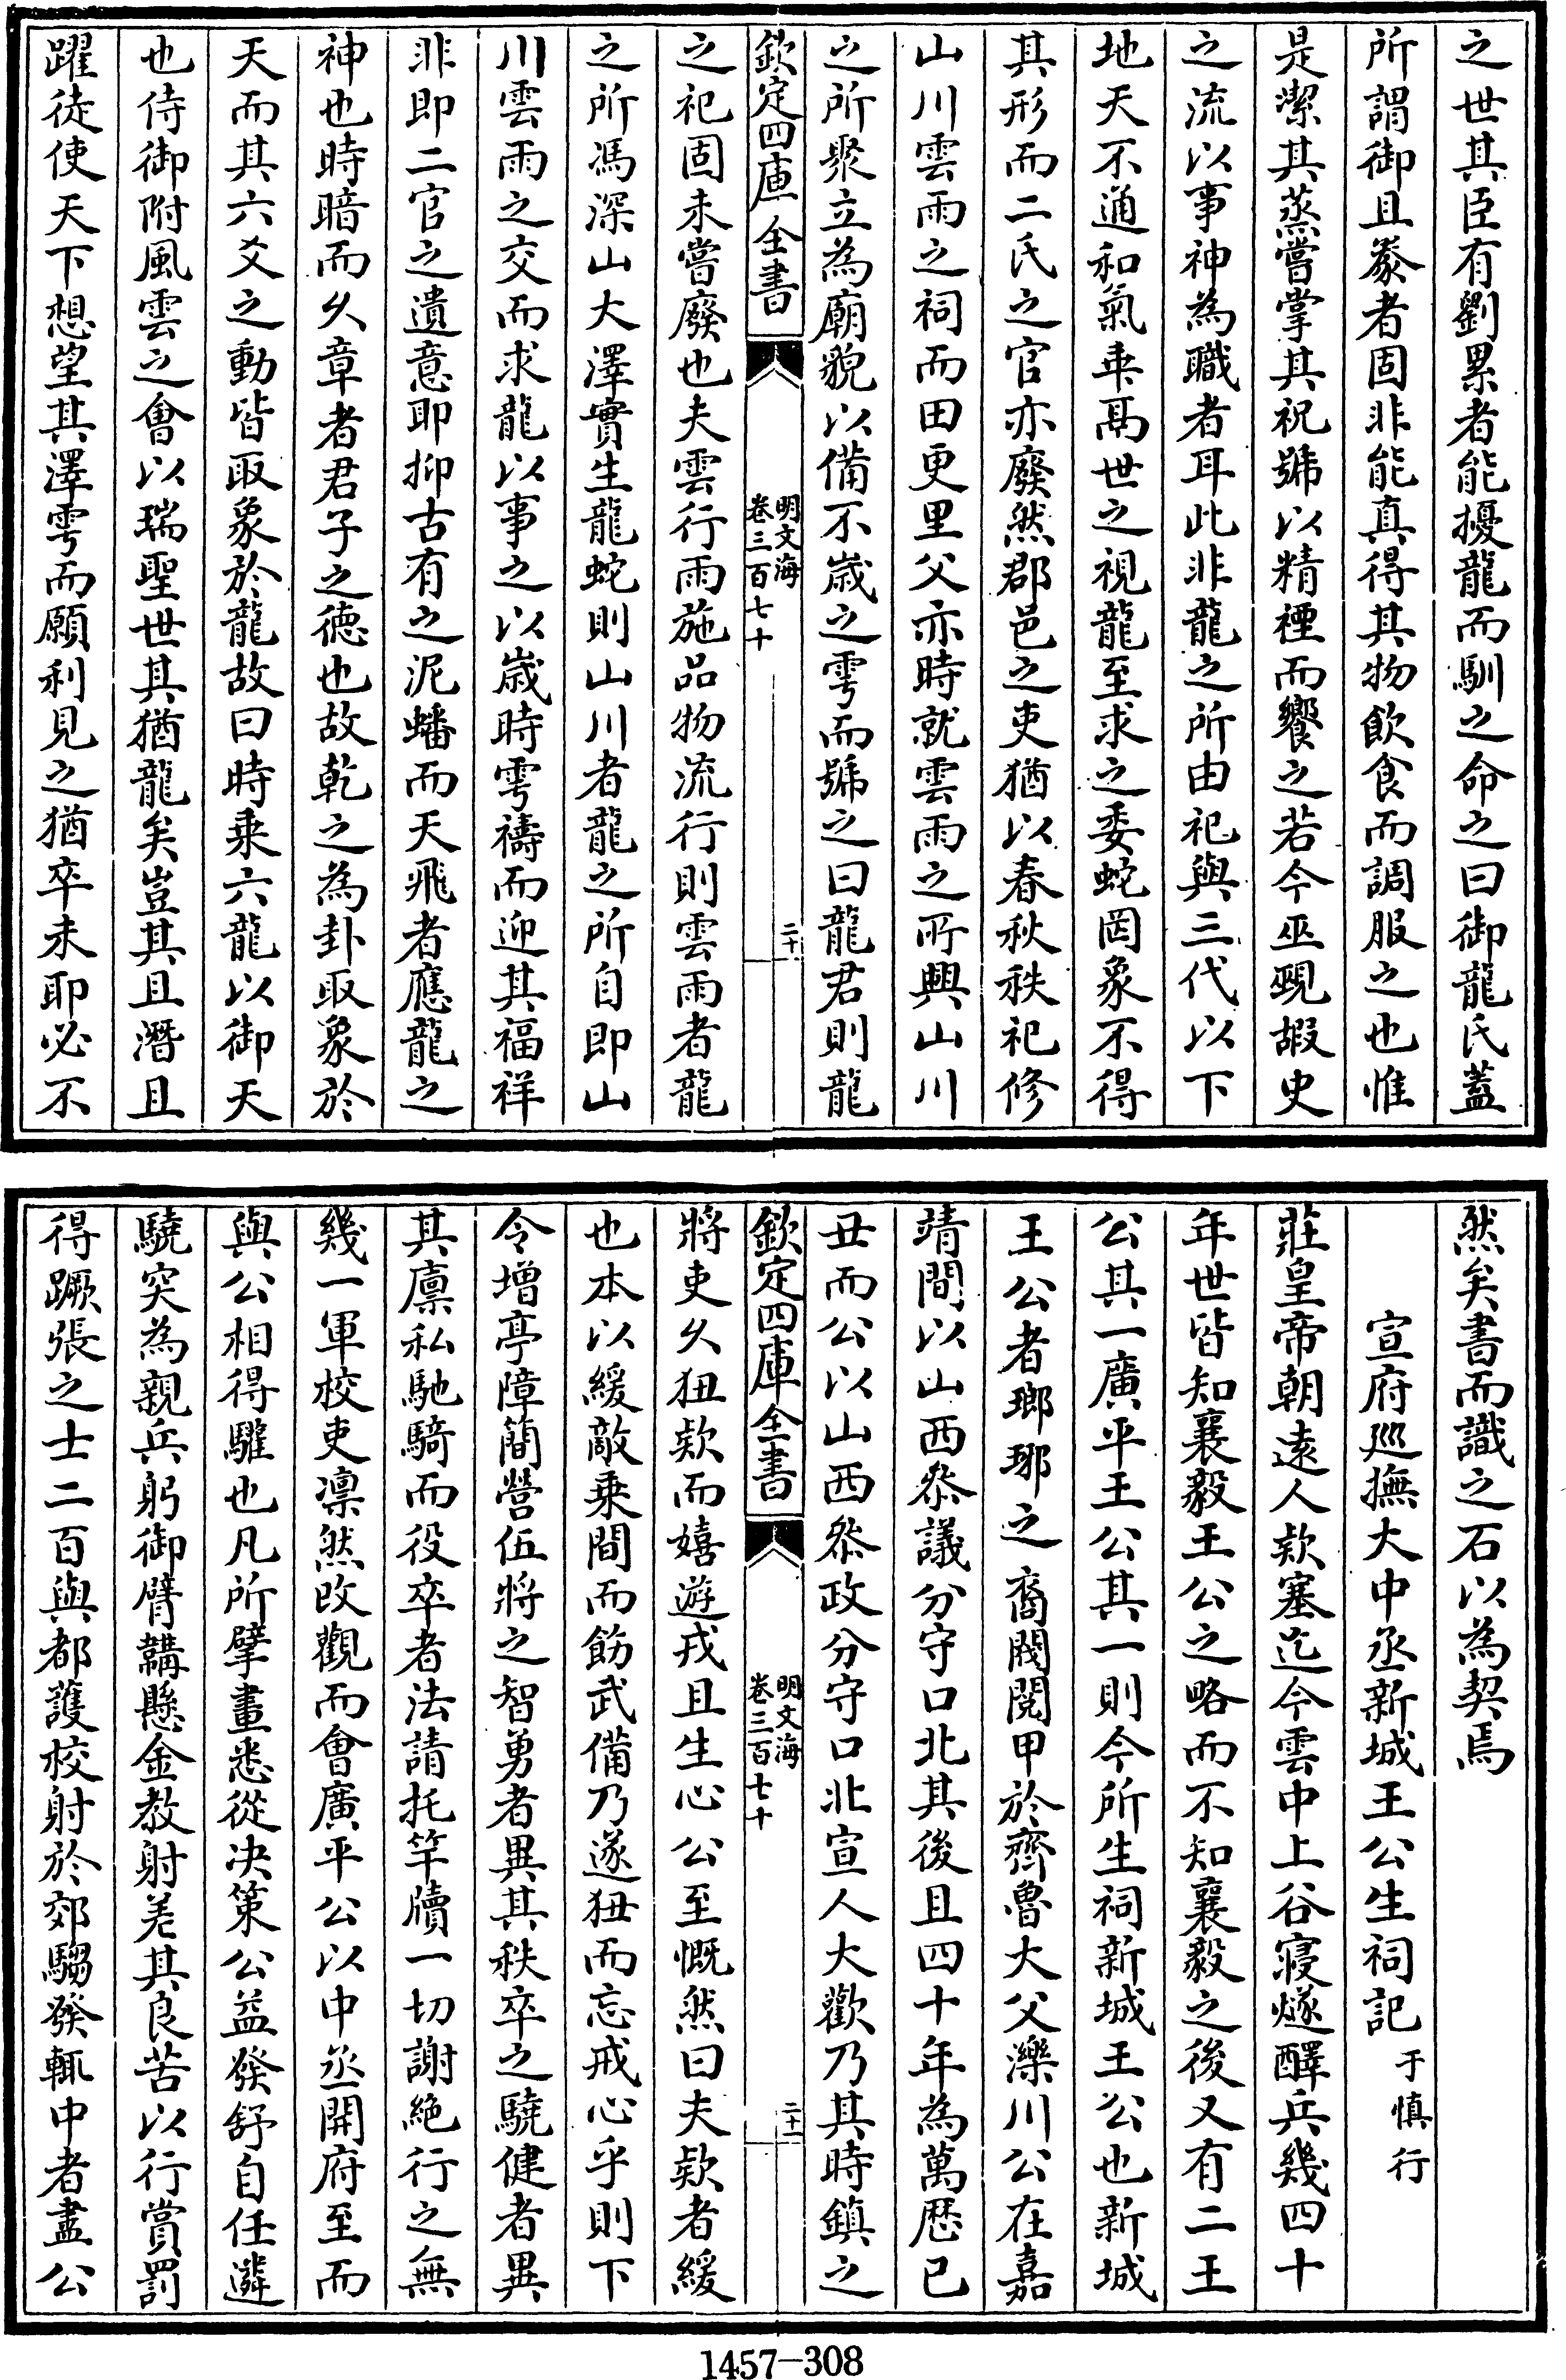 之世其臣有劉累者能擾龍而馴之命之曰御龍氏蓋
所謂御且豢者固非能真得其物飲食而調服之也惟
是潔其蒸嘗掌其祝號以精禋而饗之若今巫覡嘏史
之流以事神為職者耳此非龍之所由祀與三代以下
地天不通和氣乗鬲世之視龍至求之委蛇罔象不得
其形而二氏之官亦廢然郡邑之吏猶以春秋秩祀修
山川雲雨之祠而田更里父亦時就雲雨之所興山川
之所聚立為廟貌以備不嵗之雩而號之曰龍君則龍
欽定四庫全書
明文海
卷三百七十
二十
之祀固未嘗廢也夫雲行雨施品物流行則雲雨者龍
之所馮深山大澤實生龍蛇則山川者龍之所自即山
川雲雨之交而求龍以事之以嵗時雩禱而迎其福祥
非即二官之遺意耶抑古有之泥蟠而天飛者應龍之
神也時暗而乆章者君子之徳也故乾之為卦取象於
天而其六爻之動皆取象於龍故曰時乗六龍以御天
也侍御附風雲之會以瑞聖世其猶龍矣豈其且潛且
躍徒使天下想望其澤雩而願利見之猶卒未耶必不
然矣書而識之石以為契焉
宣府巡撫大中丞新城王公生祠記 于慎行
莊皇帝朝逺人欵塞迄今雲中上谷寢燧醳兵幾四十
年世皆知襄毅王公之略而不知襄毅之後又有二王
公其一廣平王公其一則今所生祠新城王公也新城
王公者瑯琊之裔閥閲甲於齊魯大父濼川公在嘉
靖間以山西叅議分守口北其後且四十年為萬厯已
丑而公以山西叅政分守口北宣人大歡乃其時鎮之
欽定四庫全書
明文海
卷三百七十
二十一
將吏乆狃欵而嬉遊戎且生心公至慨然曰夫欵者緩
也本以緩敵乗間而飭武備乃遂狃而忘戒心乎則下
令增亭障簡營伍將之智勇者異其秩卒之驍健者異
其廪私馳騎而役卒者法請托竿牘一切謝絶行之無
幾一軍校吏凛然改觀而會廣平公以中丞開府至而
與公相得驩也凡所擘畫悉從决策公益發舒自任遴
驍突為親兵躬御臂韝懸金教射差其良苦以行賞罰
得蹶張之士二百與都護校射於郊騶發輒中者盡公
1457-308